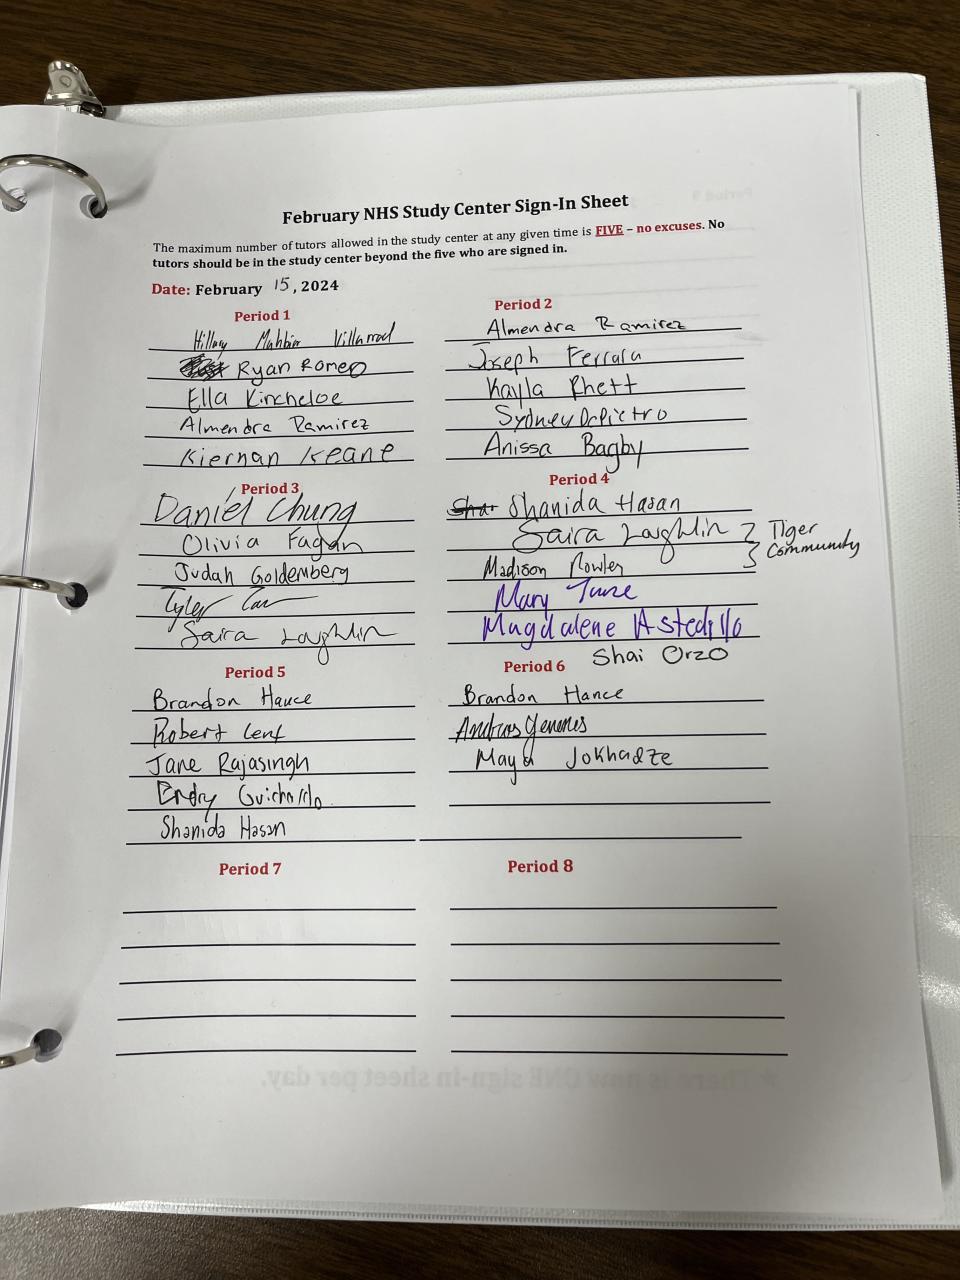 February NHS Study Center Sign-In Sheet
The maximum number of tutors allowed in the study center at any given time is FIVE – no excuses. No
tutors should be in the study center beyond the five who are signed in.
Date: February 15, 2024
Period 1
Hillary Mahbir Villarreal
Ryan Romeo
Ella Kincheloe
Almendra Ramirez
Kiernan Keane
Period 2
Almendra Ramirez
Joseph Ferrara
Kayla Rhett
Sydney DePietro
Anissa Bagby
Period 3
Daniel Chung
Olivia Fagan
Judah Goldemberg
Tyler
Saira Laughlin
Period 4
Shanida Hasan
Saira Laughlin
Madison Rowley
Mary Tune
Magdalene Astedillo
Shai Orzo
Tiger
Community
Period 5
Brandon Hance
Robert Lenf
Jane Rajasingh
Endry Guichardo
Shanida Hasan
Period 6
Brandon Hance
Andros Jenemes
Maya Jokhadze
Period 7
Period 8
★ There is now ONE sign-in sheet per day.